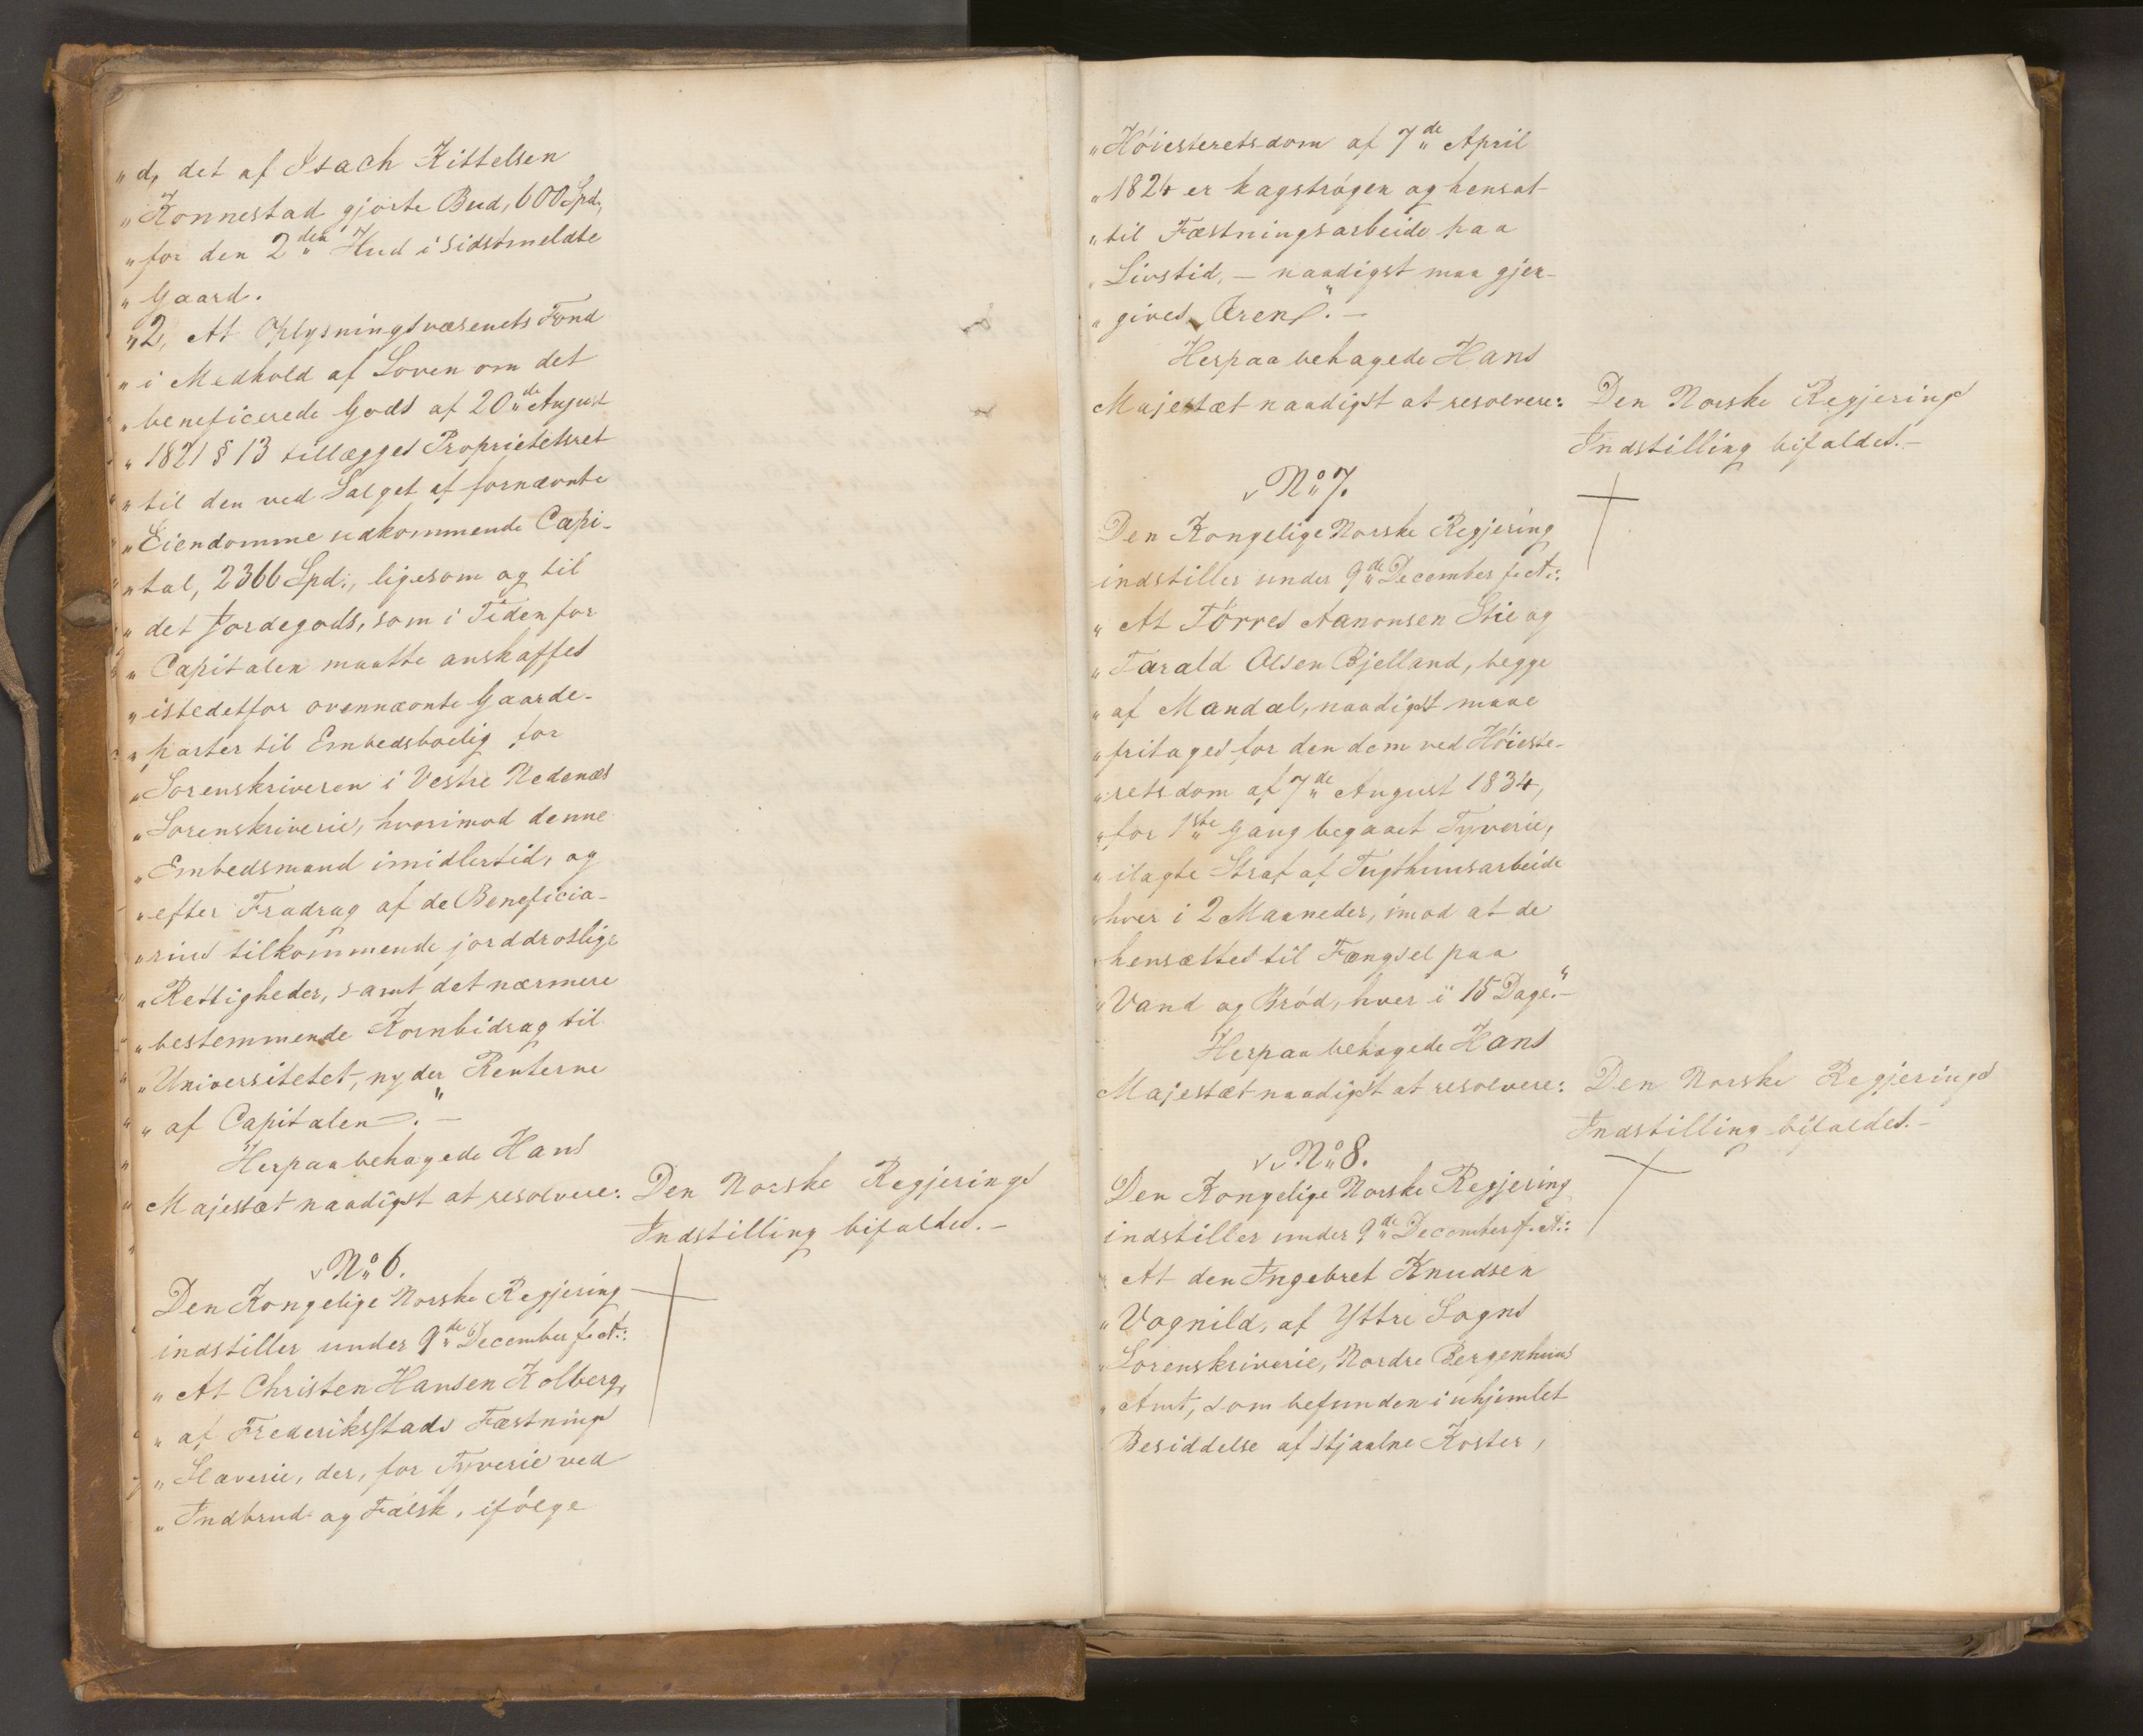 „d, det af Isach Kittelsen
„Konnestad gjorte Bud, 600 Spd.,
„for den 2den Hud i sidstmeldte
„Gaard.
„2, At Oplysningsvæsenets Fond
„i Medhold af Loven om det
„beneficerede Gods af 20de August
„1821 § 13 tillægges Proprietetsret
„til den ved Salget af fornævnte
„Eiendomme udkommende Capi-
„tal, 2366 Spd:, ligesom og til
„det Jordegods, som i Tiden for
„Capitalen maatte anskaffes
„istedetfor ovennævnte Gaarde-
„parter til Embedsbolig for
„Sorenskriveren i Vestre Nedenæs
„Sorenskriverie, hvorimod denne
„Embedsmand imidlertid, og
„efter Fradrag af de Beneficia-
„rius tilkommende jorddrotlige
„Rettigheder, samt det nærmere
„bestemmende Kornbidrag til
„Universitetet, nyder Renterne
„af Capitalen.“ —
Herpaa behagede Hans
Majestæt naadigst at resolvere:
Den Norske Regjerings
Indstilling bifaldes. —
No 6.
Den Kongelige Norske Regjering
indstiller under 9de December f. A.:
„At Christen Hansen Kolberg,
„af Frederiksstads Fæstnings
„Slaverie, der, for Tyverie ved
„Indbrud og Falsk, ifølge
„Høiesteretsdom af 7de April
„1824 er kagstrøgen og hensat
„til Fæstningsarbeide paa
„Livstid, — naadigst maa gjen-
„gives Æren“. —
Herpaa behagede Hans
Majestæt naadigst at resolvere:
Den Norske Regjerings
Indstilling bifaldes. —
No 7.
Den Kongelige Norske Regjering
indstiller under 9de December f. A.:
„At Tørres Aanonsen Stie og
„Tarald Olsen Bjelland, begge
„af Mandal, naadigst maae
„fritages for den dem ved Høieste-
„retsdom af 7de August 1834,
„for 1ste Gang begaaet Tyverie,
„ilagte Straf af Tugthuusarbeide
„hver i 2 Maaneder, imod at de
„hensættes til Fængsel paa
„Vand og Brød, hver i 15 Dage.“ —
Herpaa behagede Hans
Majestæt naadigst at resolvere:
Den Norske Regjerings
Indstilling bifaldes. —
No 8.
Den Kongelige Norske Regjering
indstiller under 9de December f. A.:
„At den Ingebret Knudsen
„Vognild, af Yttre Sogns
„Sorenskriverie, Nordre Bergenhuus
„Amt, som befunden i uhjemlet
Besiddelse af stjaalne Koster,